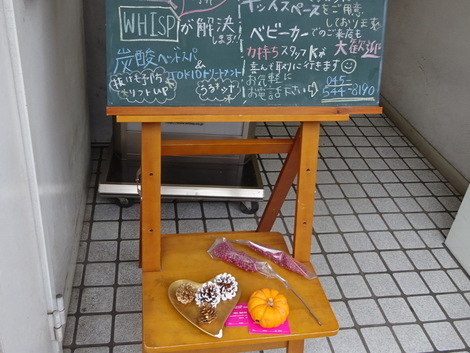 WHISPが解決
します!
炭酸ヘッドスパ
&
TOKIOトリートメント
抜け毛予防
&リフトUP
うるツヤ
キッズスペースをご用意
しております
ベビーカーでのご来店も
大歓迎!!
力持ちスタッフKが
喜んで取りに行きます
お気軽に
お電話下さい
045-
544-8190